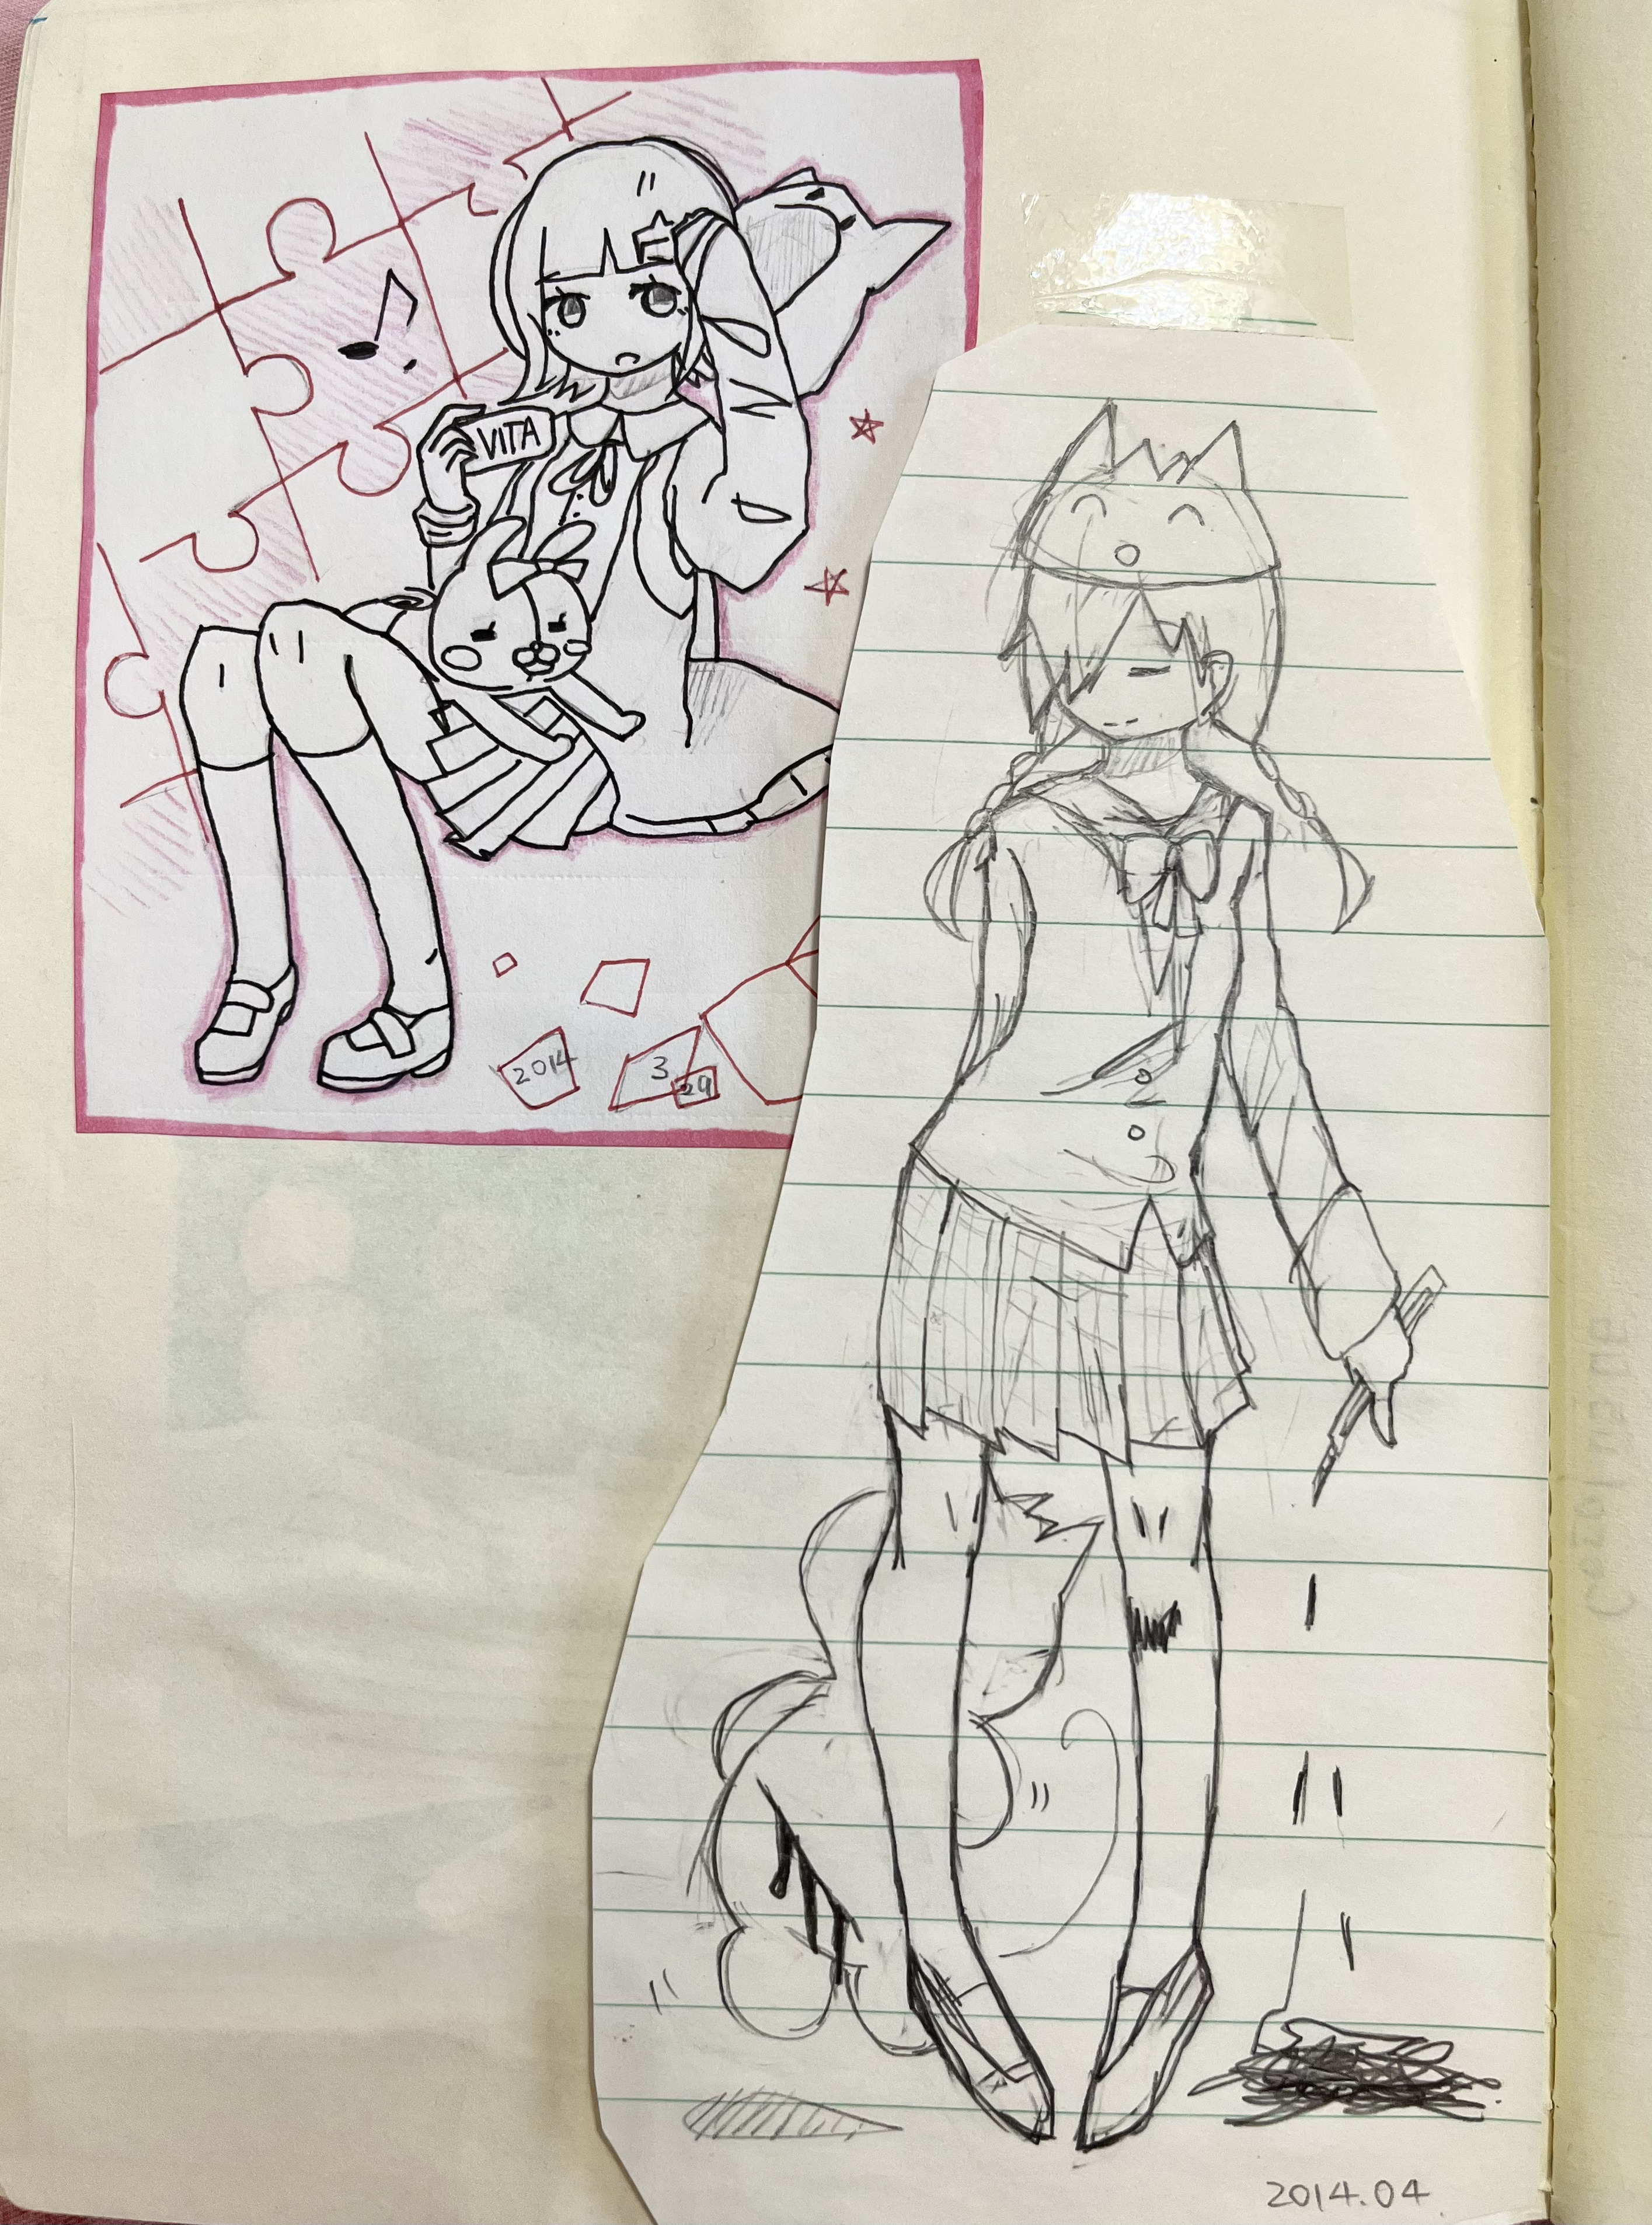 VITA
2014
3
29
2014.04